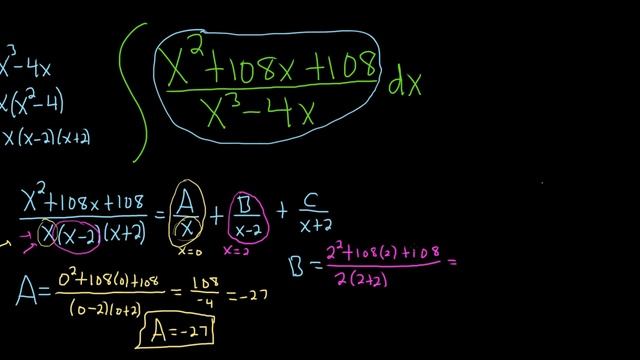 x³-4x
x(x²-4)
x(x-2)(x+2)
∫ (x²+108x+108)/(x³-4x) dx
(x²+108x+108)/(x(x-2)(x+2)) = A/x + B/(x-2) + C/(x+2)
x=0 x=2
A = (0²+108(0)+108)/((0-2)(0+2)) = 108/-4 = -27
B = (2²+108(2)+108)/(2(2+2)) =
A = -27